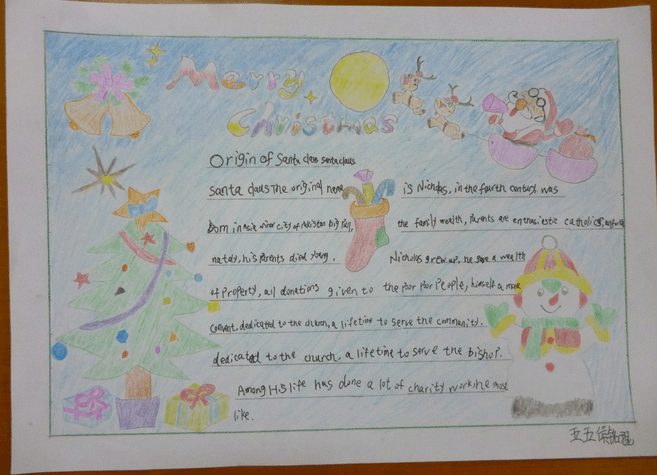 Merry
Christmas
Origin of Santa claus santa claus
santa claus The original name is Nicholas, in the fourth century was
Born in Asia minor city of big, the family wealth, Parents are enthusiastic catholics,
nately, his parents died young. Nicholas grew up, he gave a wealth
of Property, all donations given to the Poor Poor People, himself a
Convent, dedicated to the church, a lifetime to serve the community.
dedicated to the church, a lifetime to serve the bishop.
Among His life has done a lot of charity work he most
like.
五五